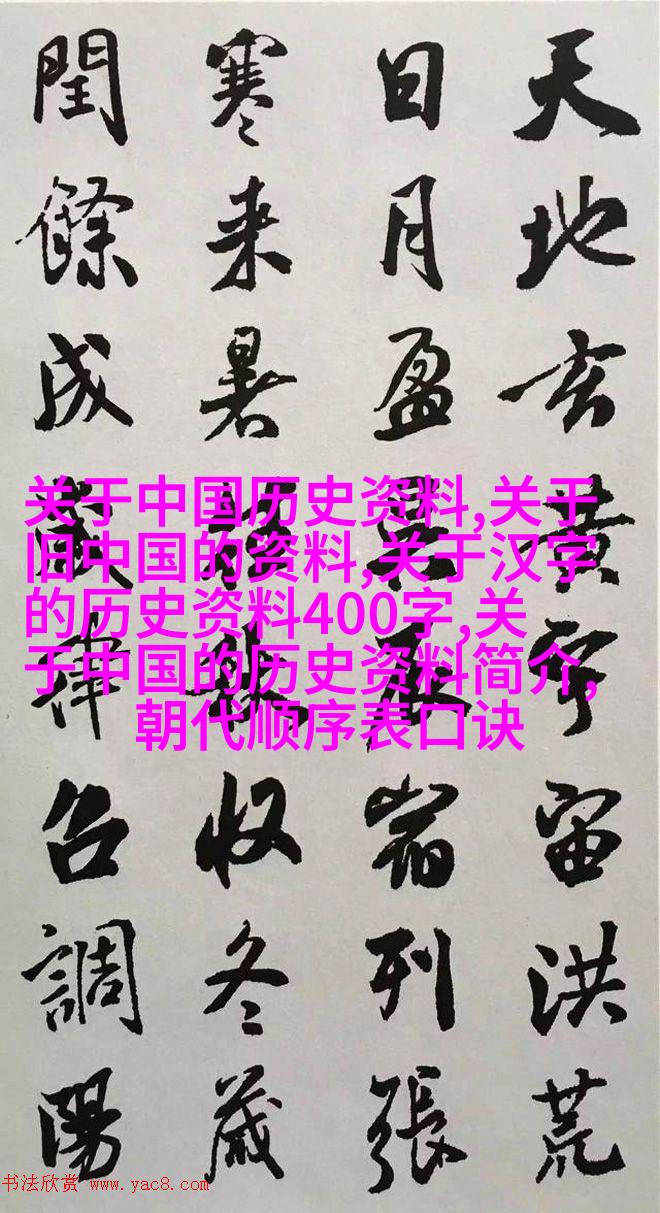 天地玄黄宇宙洪荒
日月盈昃辰宿列張
寒来暑往秋收冬藏
閏餘成歲律召調陽
关于中国历史资料,关于
旧中国的资料,关于汉字
的历史资料400字,关
于中国的历史资料简介,
朝代顺序表口诀
书法欣赏 www.yac8.com